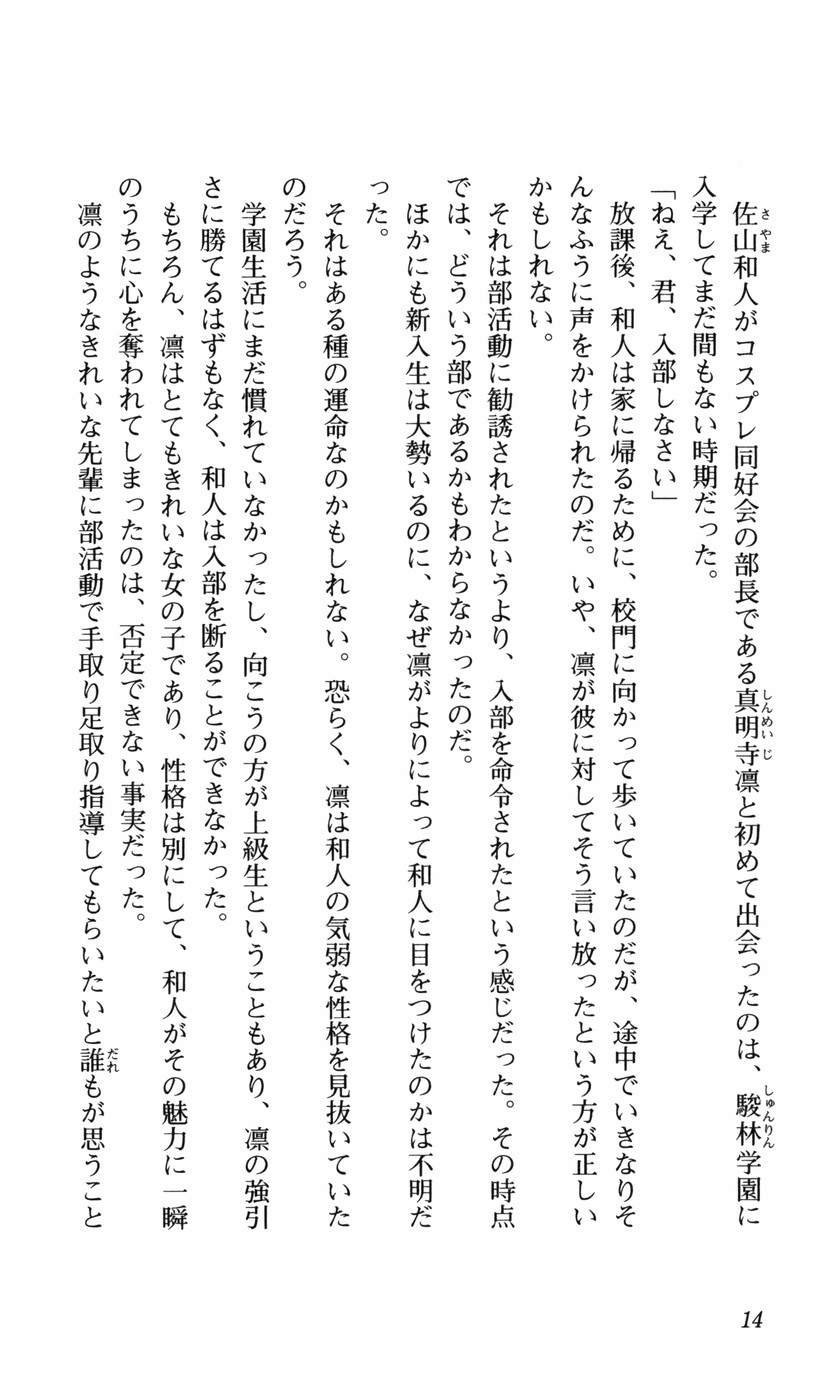 佐山和人がコスプレ同好会の部長である真明寺凛と初めて出会ったのは、駿林学園に
入学してまだ間もない時期だった。
「ねえ、君、入部しなさい」
放課後、和人は家に帰るために、校門に向かって歩いていたのだが、途中でいきなりそ
んなふうに声をかけられたのだ。いや、凛が彼に対してそう言い放ったという方が正しい
かもしれない。
それは部活動に勧誘されたというより、入部を命令されたという感じだった。その時点
では、どういう部であるかもわからなかったのだ。
ほかにも新入生は大勢いるのに、なぜ凛がよりによって和人に目をつけたのかは不明だ
った。
それはある種の運命なのかもしれない。恐らく、凛は和人の気弱な性格を見抜いていた
のだろう。
学園生活にまだ慣れていなかったし、向こうの方が上級生ということもあり、凛の強引
さに勝てるはずもなく、和人は入部を断ることができなかった。
もちろん、凛はとてもきれいな女の子であり、性格は別にして、和人がその魅力に一瞬
のうちに心を奪われてしまったのは、否定できない事実だった。
凛のようなきれいな先輩に部活動で手取り足取り指導してもらいたいと誰もが思うこと
14